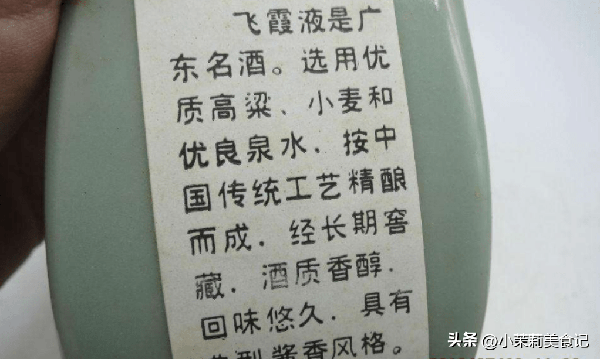 飞霞液是广
东名酒。选用优
质高粱、小麦和
优良泉水，按中
国传统工艺精酿
而成，经长期窖
藏，酒质香醇，
回味悠久，具有
型酱香风格。
头条 @小茉莉美食记